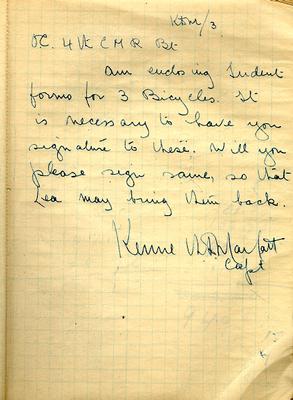 KDM/3
OC. 4th C M R Bt
Am enclosing Indent
forms for 3 Bicycles. It
is necessary to have you
signature to these. Will you
please sign same, so that
Lea may bring them back.
Capt